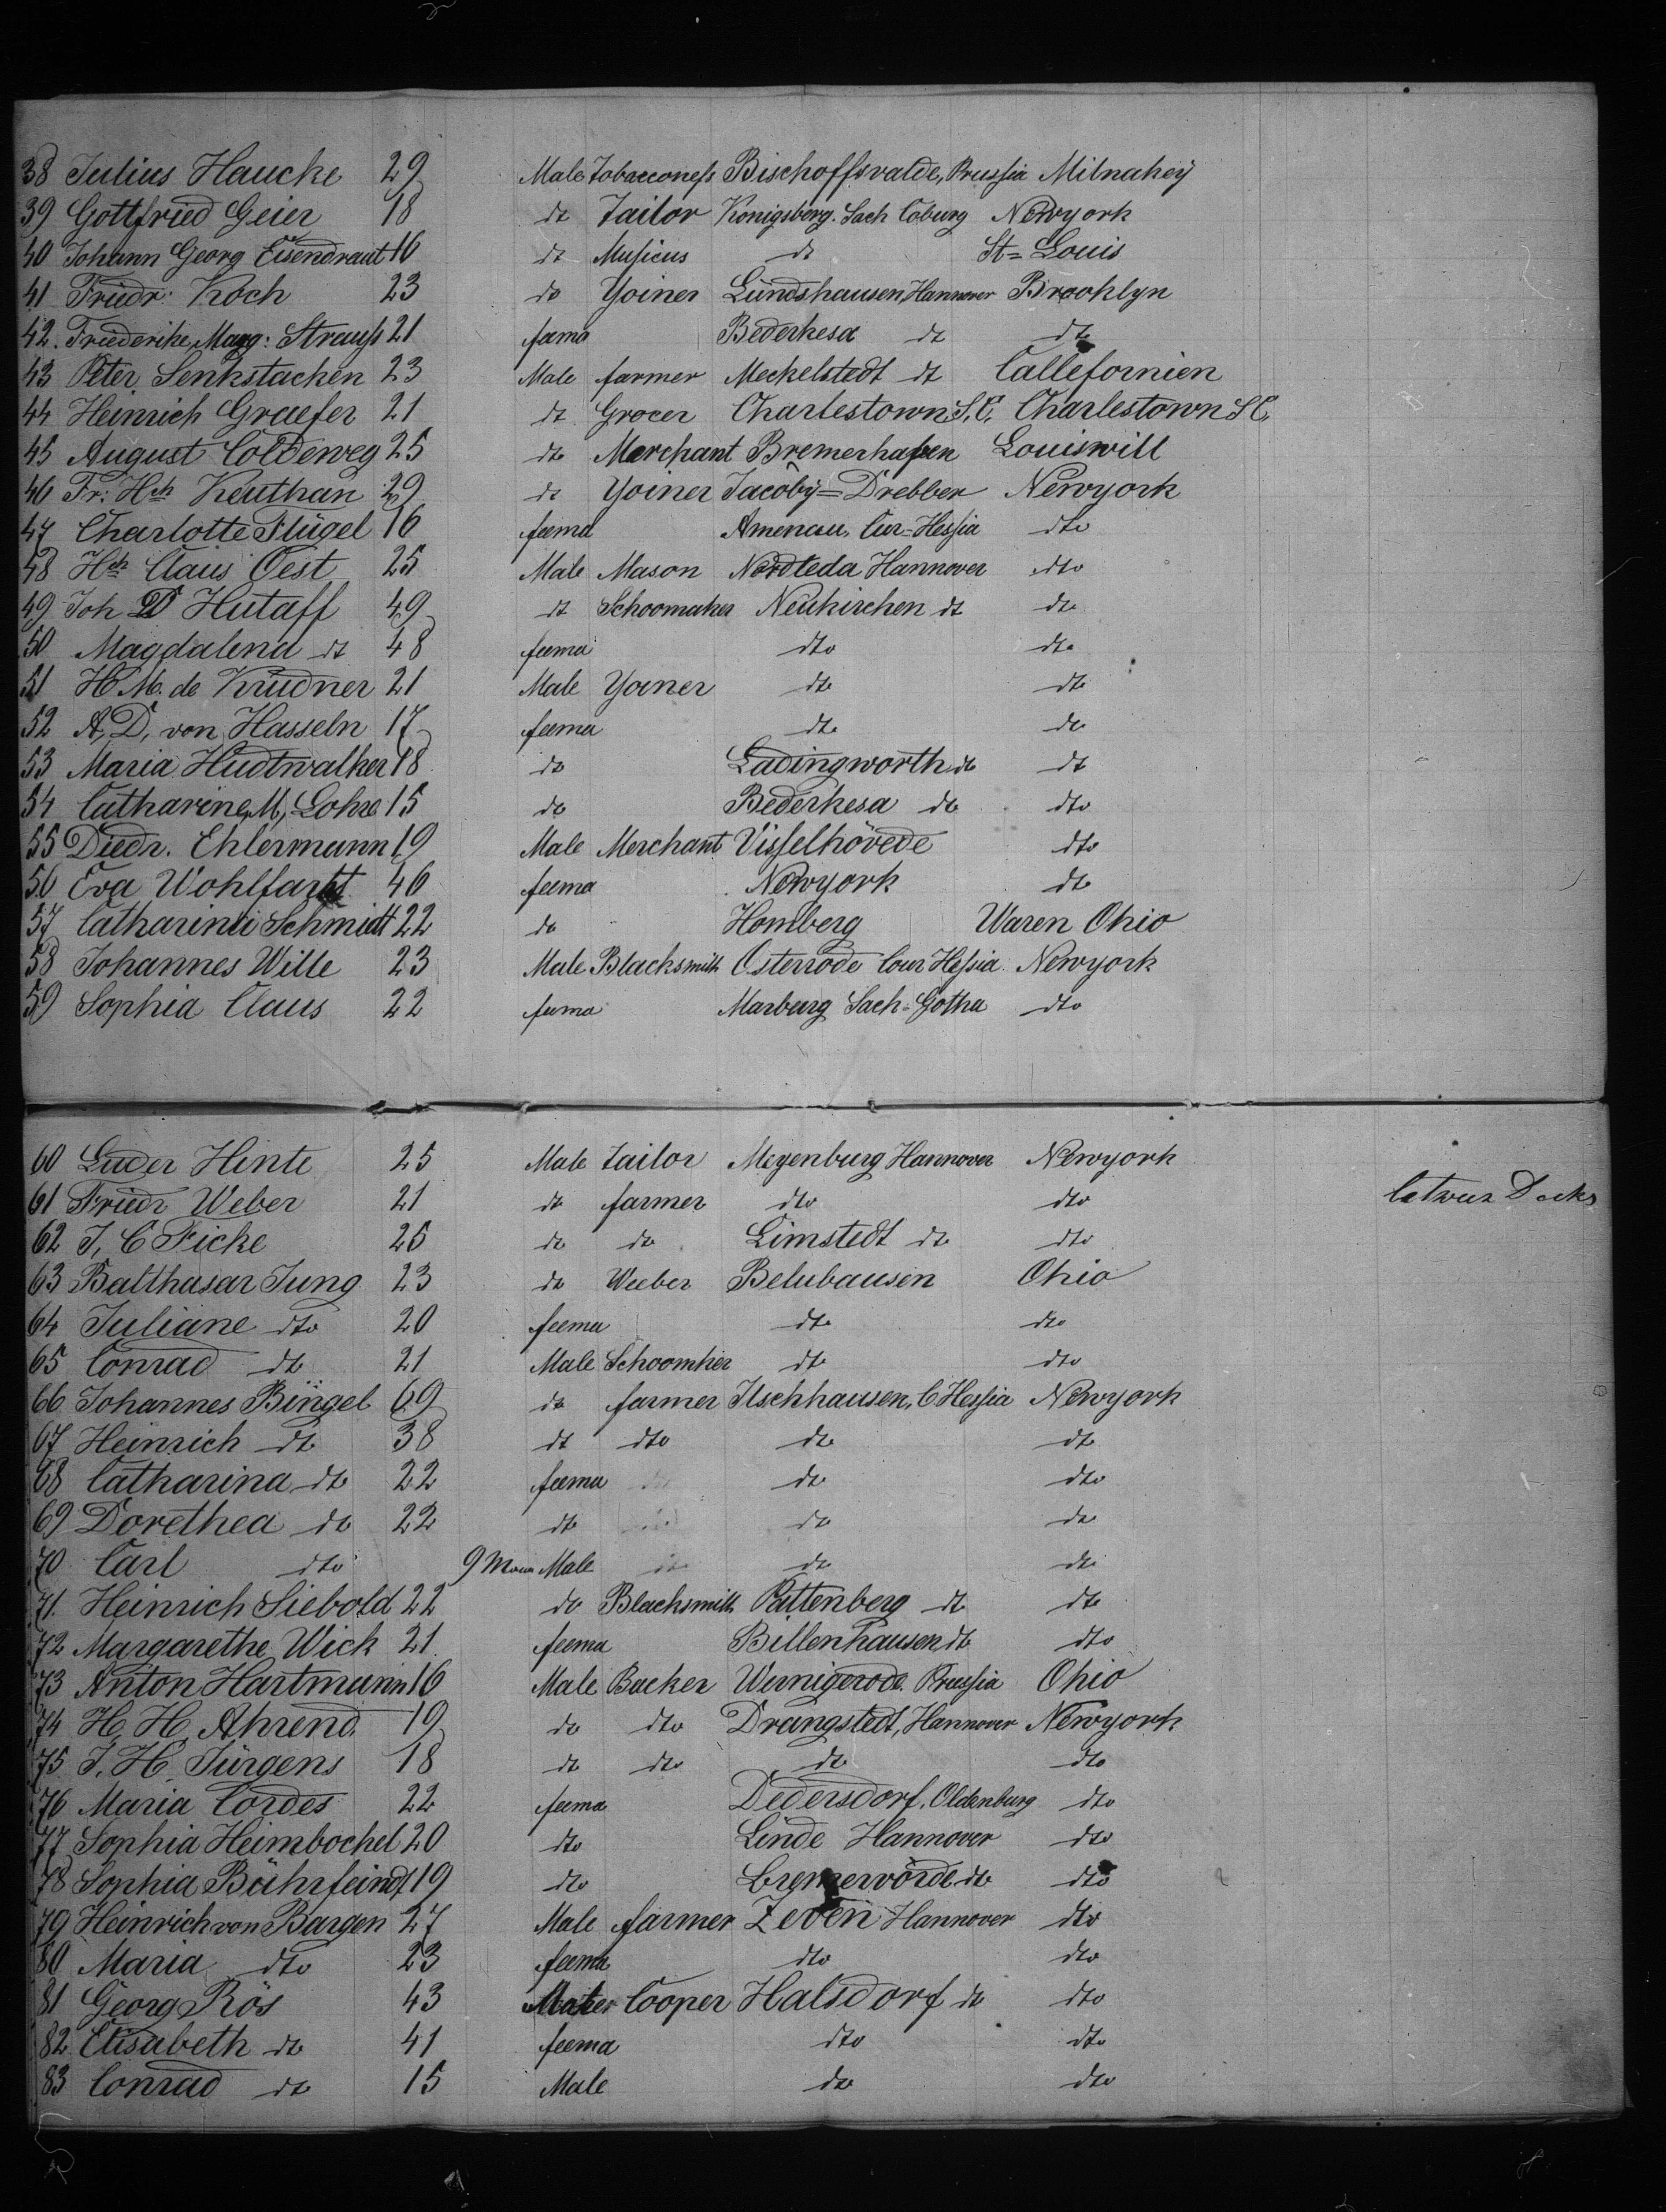 38 Julius Haucke 29 Male Tobacconess Bischoffswalde, Prussia Milnahey
39 Gottfried Geier 18 dt Tailor Konigsberg. Sach Coburg Newyork
40 Johann Georg Eisendraut 16 dt Musicus dt St= Louis
41 Friedr: Koch 23 do Yoiner Lündshausen, Hannover Brooklyn
42. Friederike Marg: Strauss 21 fama Bederkesa dt dto
43 Peter Senkstacken 23 Male farmer Meckelstedt dt Callefornien
44 Heinrich Graefer 21 dt Grocer Charlestown S.C. Charlestown SC,
45 August Coldeweg 25 dto Merchant Bremerhafen Louiswill
46 Fr: Hch Keuthan 29 dt Yoiner Jacoby=Drebber Newyork
47 Charlotte Flügel 16 feema Amenau, Cur=Hessia dto
48 Hch Claus Oest 25 Male Mason Nordleda Hannover dto
49 Joh D Hutaff 49 dt Schoomaker Neukirchen dt dto
50 Magdalena dt 48 feema dto dto
51 H M. de Krüdner 21 Male Yoiner dto dto
52 A, D, von Hasseln 17 feema dto do
53 Maria Hudtwalker 18 do Ladingworth do dt
54 Catharine M, Lohse 15 do Bederkesa do dto
55 Diedr. Ehlermann 19 Male Merchant Visselhövede dto
56 Eva Wohlfart 46 feema Newyork dto
57 Catharina Schmidt 22 do Homberg Waren Ohio
58 Johannes Wille 23 Male Blacksmith Osterrode Cour Hessia Newyork
59 Sophia Claus 22 feema Marburg Sach=Gotha dto
60 Luder Hinte 25 Male Tailor Meyenburg Hannover Newyork
61 Friedr Weber 21 dt farmer dto dto
Decks
62 J, C Ficke 25 do do Limstedt do dto
63 Balthasar Jung 23 do Weeber Belubausen Ohio
64 Juliane dto 20 feema dto dto
65 Conrad dto 21 Male Schoomker dto dto
66 Johannes Bingel 69 do farmer Itschhausen, C Hessia Newyork
67 Heinrich dto 38 dt dto do dt
68 Catharina dto 22 feema do dto
69 Dorethea do 22 dto do do
70 Carl dto 9 Male do do
71. Heinrich Siebold 22 do Blacksmith Rattenberg dt dto
72 Margarethe Wick 21 feema Billenhausen dto dto
73 Anton Hartmann 16 Male Backer Wernigerode Prussia Ohio
74 H, H, Ahrend 19 do dto Drangstedt, Hannover Newyork
75 J. H. Jürgens 18 dt dto do dto
76 Maria Cordes 22 feema Dedersdorf, Oldenburg dto
77 Sophia Heimbockel 20 dto Linde Hannover dto
78 Sophia Böhrfeindt 19 dto bremervörde do dto
79 Heinrich von Bargen 27 Male farmer Zeven Hannover dto
80 Maria dto 23 feema dto dto
81 Georg Rös 43 Male Cooper Halsdorf do dto
82 Elisabeth dt 41 feema dto dto
83 Conrad do 15 Male do dto